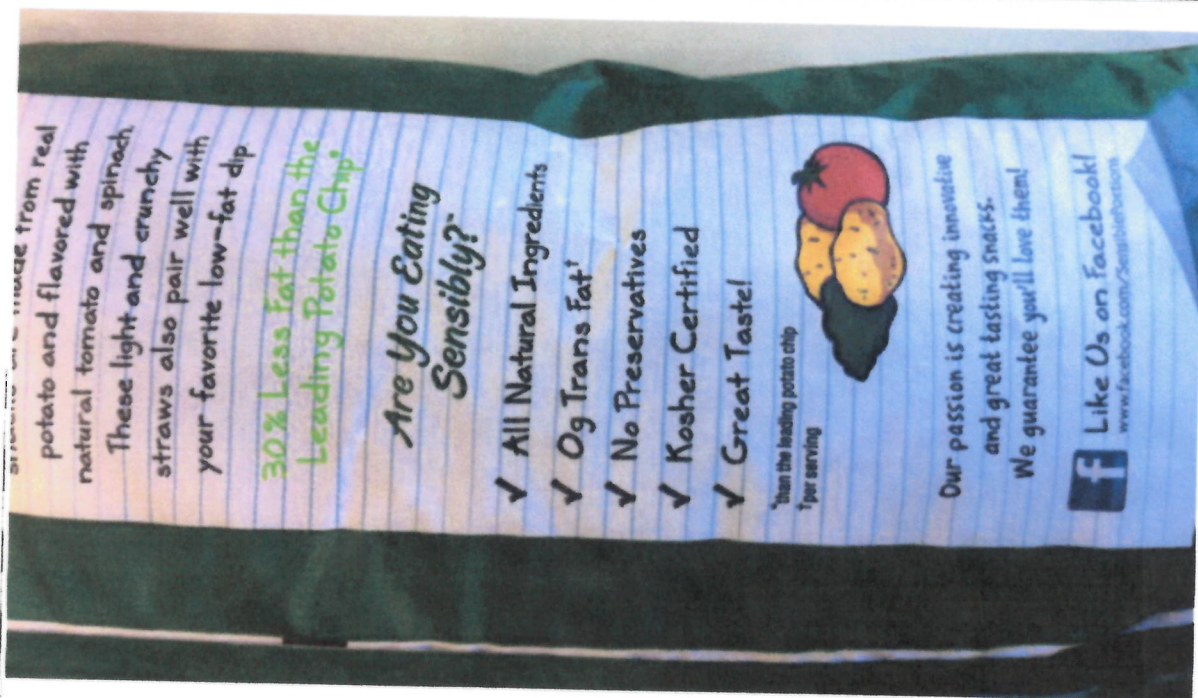 made from real
potato and flavored with
natural tomato and spinach
These light and crunchy
straws also pair well with
your favorite low-fat dip
30% Less Fat than the
Leading Potato Chip*
Are You Eating
Sensibly?™
✓ All Natural Ingredients
✓ 0g Trans Fat†
✓ No Preservatives
✓ Kosher Certified
✓ Great Taste!
*than the leading potato chip
†per serving
Our passion is creating innovative
and great tasting snacks.
We guarantee you'll love them!
f Like Us on Facebook!
www.facebook.com/SensiblePortions